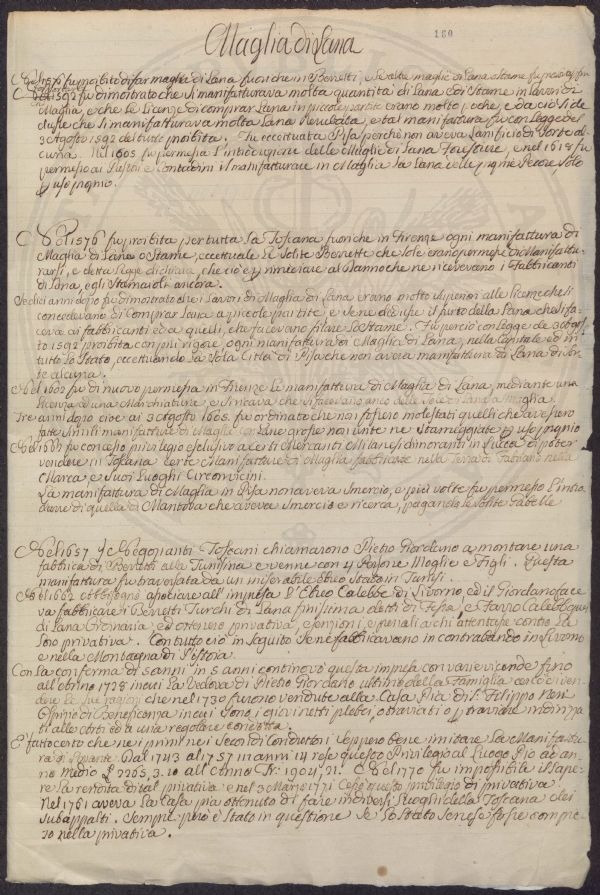 180
Maglia di Lana
Nel 1576 fu proibito di far maglia di Lana fuoriche in Berretti, e le altre maglie di Lana e Stame fu
Nel 1592 fu dimostrato che si manifatturava molta quantità di Lana e di Stame in lavori di
Maglia, e che le Licenze di comprar Lana in piccole partite erano molto poche, e da ciò si de
dusse che si manifatturava molta Lana Revubata, e tal manifattura fu con Legge del
3 Agosto 1592 del tutto proibita. Fu eccettuata Pisa perchè non aveva Lanificio di Sorte al
cuna. Nel 1605 fu permessa l'introduzione delle Maglie di Lana Forestiere, e nel 1618 fu
permesso ai Pastori e Contadini il manifatturare in Maglia la Lana delle proprie Pecore, solo
p uso proprio.
Nel 1576 fu proibita per tutta la Toscana fuoriche in Firenze ogni manifattura di
Maglia di Lana o Stame, eccettuate le Solite Berrette che sole erano permesse di Manifattu
rarsi, e detta Legge dichiara, che ciò è p rimediare al danno che ne ricevevano i Fabbricanti
di Lana, e gli Stamaioli ancora.
Sedici anni dopo fu dimostrato che i Lavori di Maglia di Lana erano molto superiori alle licenze che si
concedevano di Comprar Lana a piccole partite, e se ne dedusse il furto della Lana che si fa
ceva ai fabbricanti ed a quelli, che facevano filare lo Stame. Fu perciò con Legge de 3 Agos
to 1592 proibita con più rigore, ogni manifattura di Maglia di Lana, nella Capitale ed in
tutto lo Stato, eccettuando la Sola Città di Pisa che non aveva manifattura di Lana di Sor
te alcuna.
Nel 1602 fu di nuovo permessa in Firenze la manifattura di Maglia di Lana, mediante una
licenza ed una Marchiatura, e si ricava che si facevano anco delle
Tre anni dopo cioè ai 3 Agosto 1605. fu ordinato che non fossero molestati quelli che avessero
fatte simili manifatture di Maglia con Lane grosse non unte ne Stameggiate p uso proprio
Nel 1667 fu concesso privilegio esclusivo a certi Mercanti Milanesi dimoranti in Lucca di poter
vendere in Toscana certe Manifatture di Maglia fabbricate nella Terra di Fabriano nella
Marca e suoi Luoghi Circonvicini.
La manifattura di Maglia in Pisa non aveva Smercio, e più volte fu permesso l'intro
durre di quella di Mantova che aveva Smercio e ricerca, pagando le solite Gabelle
Nel 1657 i Negozianti Toscani chiamarono Pietro Giordano a montare una
fabbrica di Berretti alla Tunisina e venne con 4 Persone Moglie e Figli. Questa
manifattura fu traversata da un miserabile Ebreo Stato in Tunisi.
Nel 1662 ebbe bisogno apociare all'impresa l'Ebreo Calebbe di Livorno, ed il Giordano face
va fabbricare i Berretti Turchi di Lana finissima detti di Fessa, e l'altro Calebbe que
di Lana Ordinaria, ed ottenero privativa, esenzioni, e penali a chi attentasse contro la
loro privativa. Con tutto ciò in seguito Se ne fabbricavano in contrabbando in Livorno
e nella Montagna di Pistoia.
Con la conferma di 5 anni in 5 anni continovò questa impresa con varie vicende fino
all'anno 1728 in cui la Vedova di Pietro Giordano ultimo della Famiglia cercò ven
dere le sue ragioni che nel 1730 furono vendute alla Casa Pia di S. Filippo Neri
Ospizio di Beneficenza in cui sono, i giovinetti plebei, otraviati o
ti alle arti ed a una regolare condotta.
E' fatto certo che ne i primi ne i Secondi Conduttori seppero bene imitare la Manifattu
ra di Levante. Dal 1743 al 1757 in anni 14 rese questo Privilegio al Luogo Pio ad an
no medio £ 2265, 3. 10 all'Anno
re la rendita di tal privativa e nel 3 Marzo 1771 Cessò questo privilegio di privativa.
Nel 1761 aveva la Casa pia ottenuto di fare in diversi Luoghi della Toscana dei
Subappalti. Sempre però è Stato in questione se lo Stato Senese fosse compre
so nella privativa.